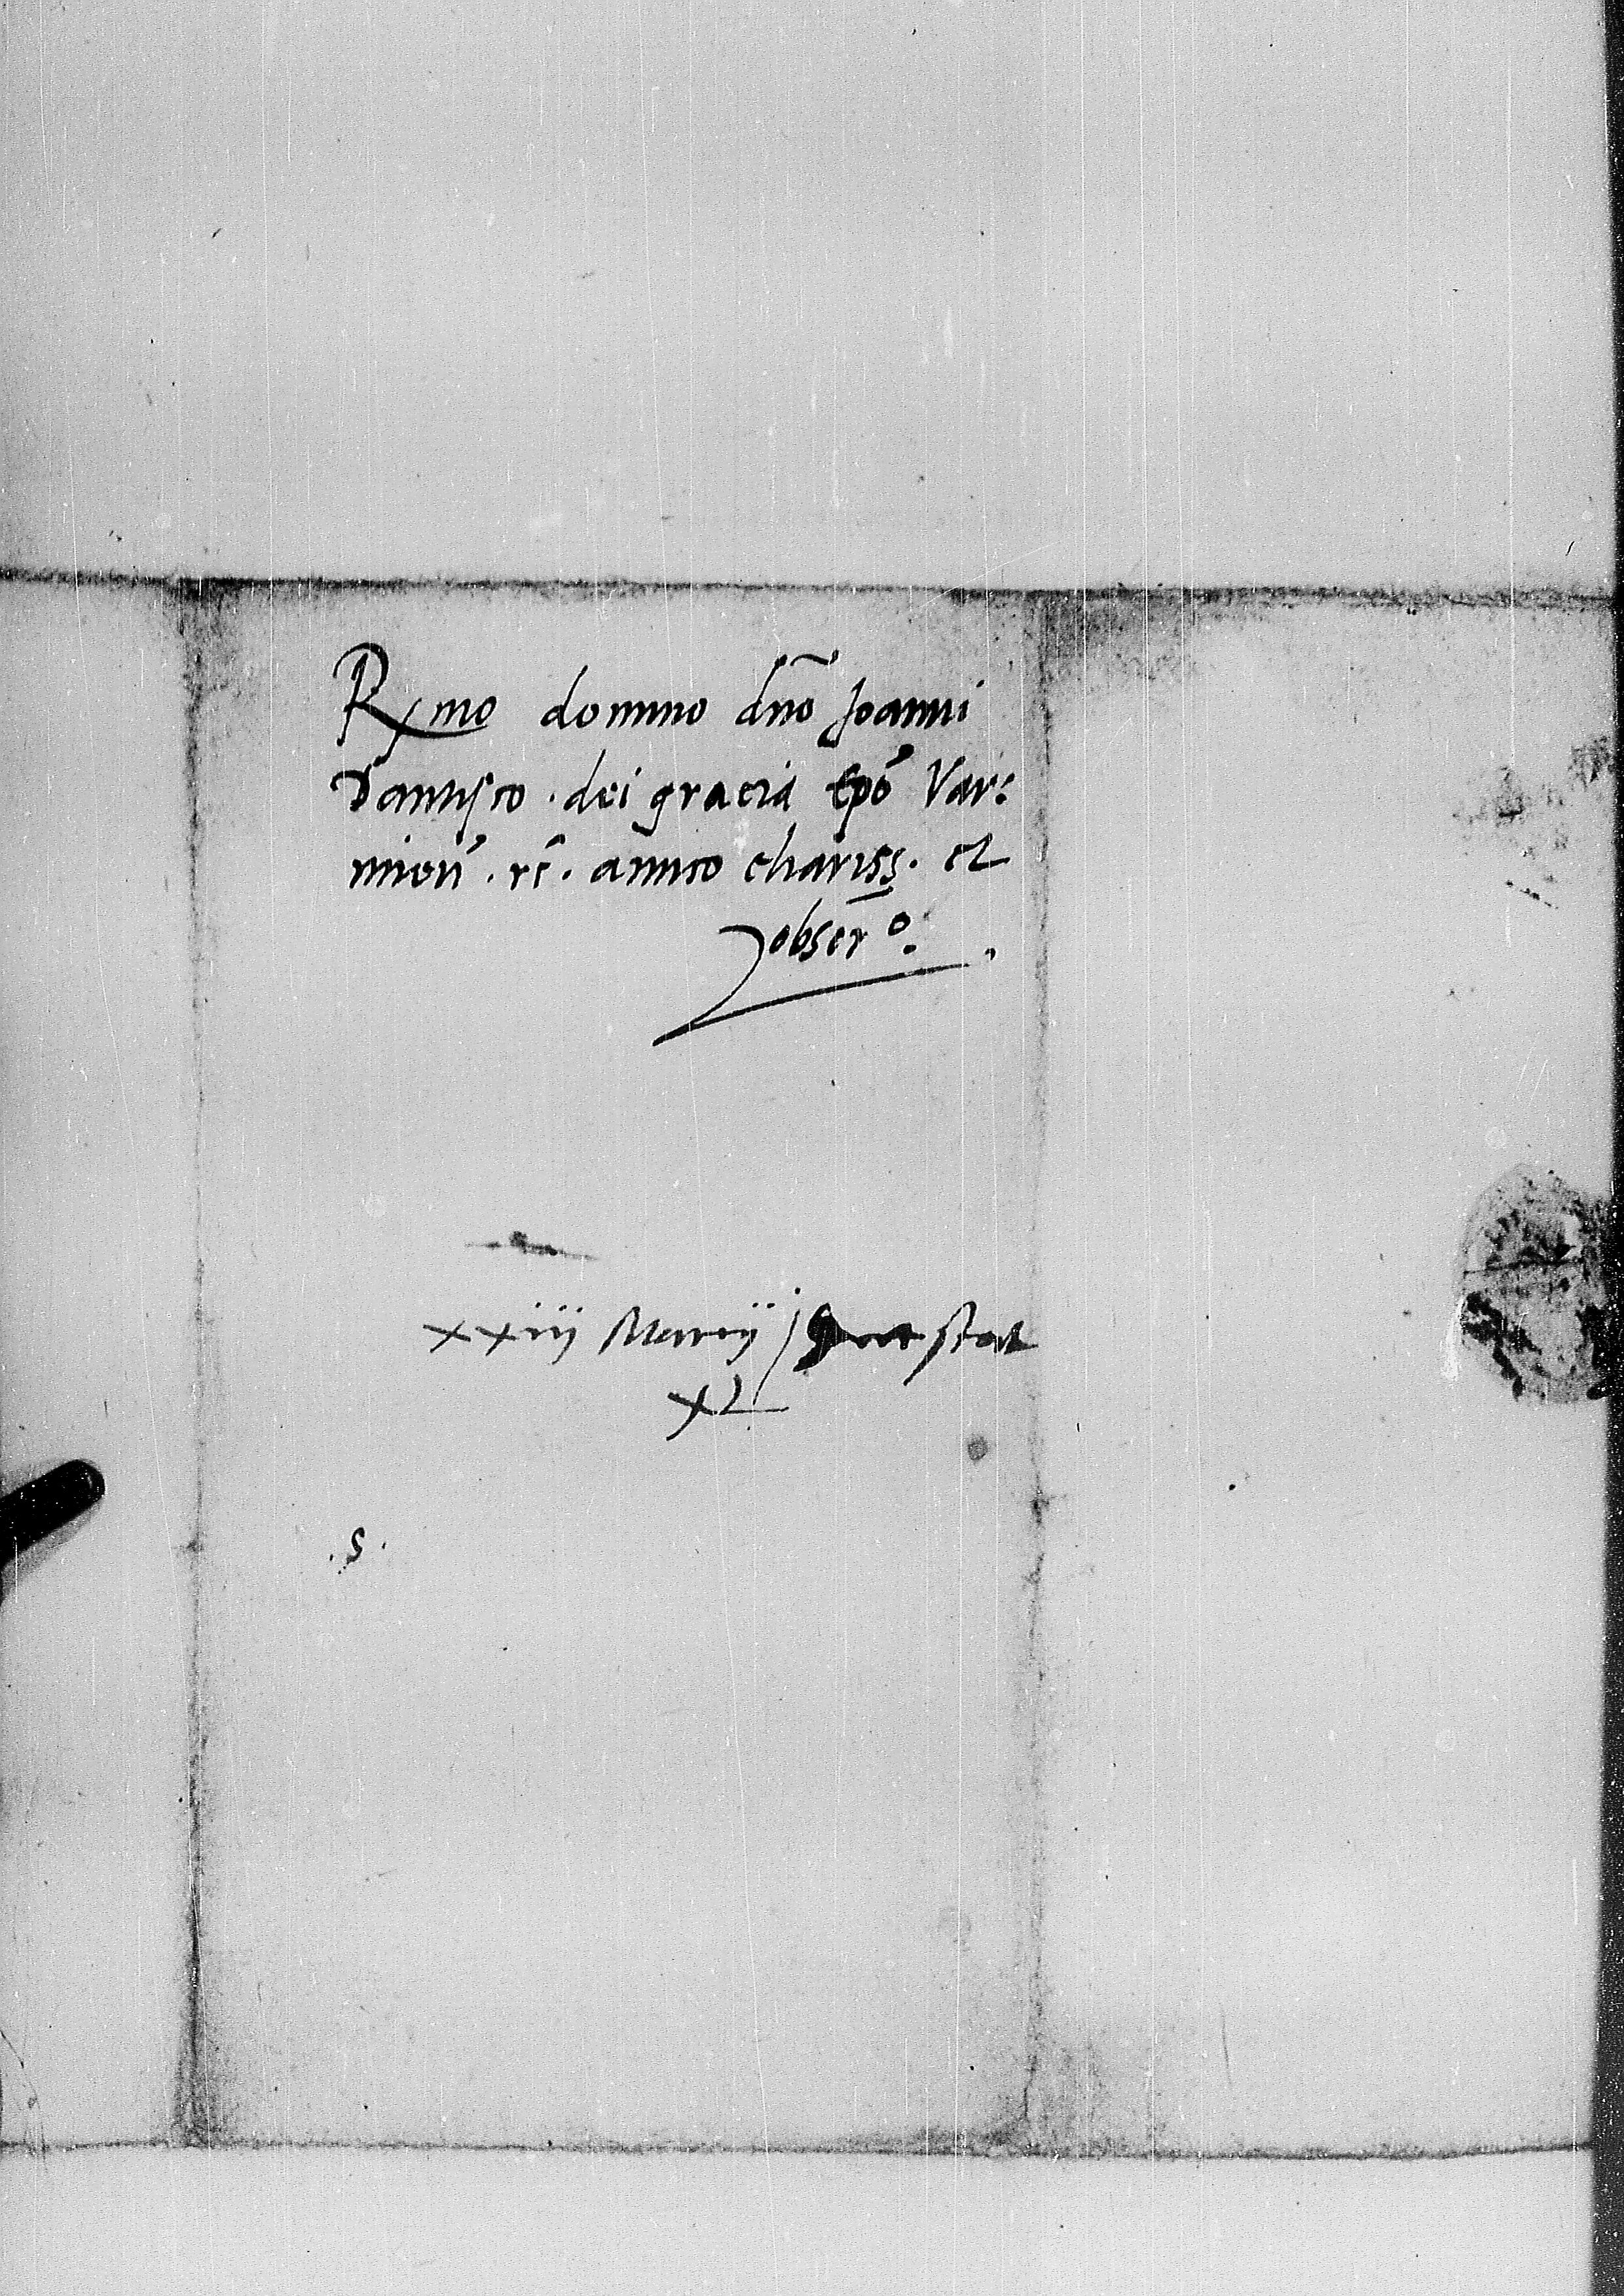 Rmo domino dno Joanni
Dantisco . dei gracia Epo Var:
mien . rc . amico chariss. et
obser o.
xxiii Marcii
xL
.s.